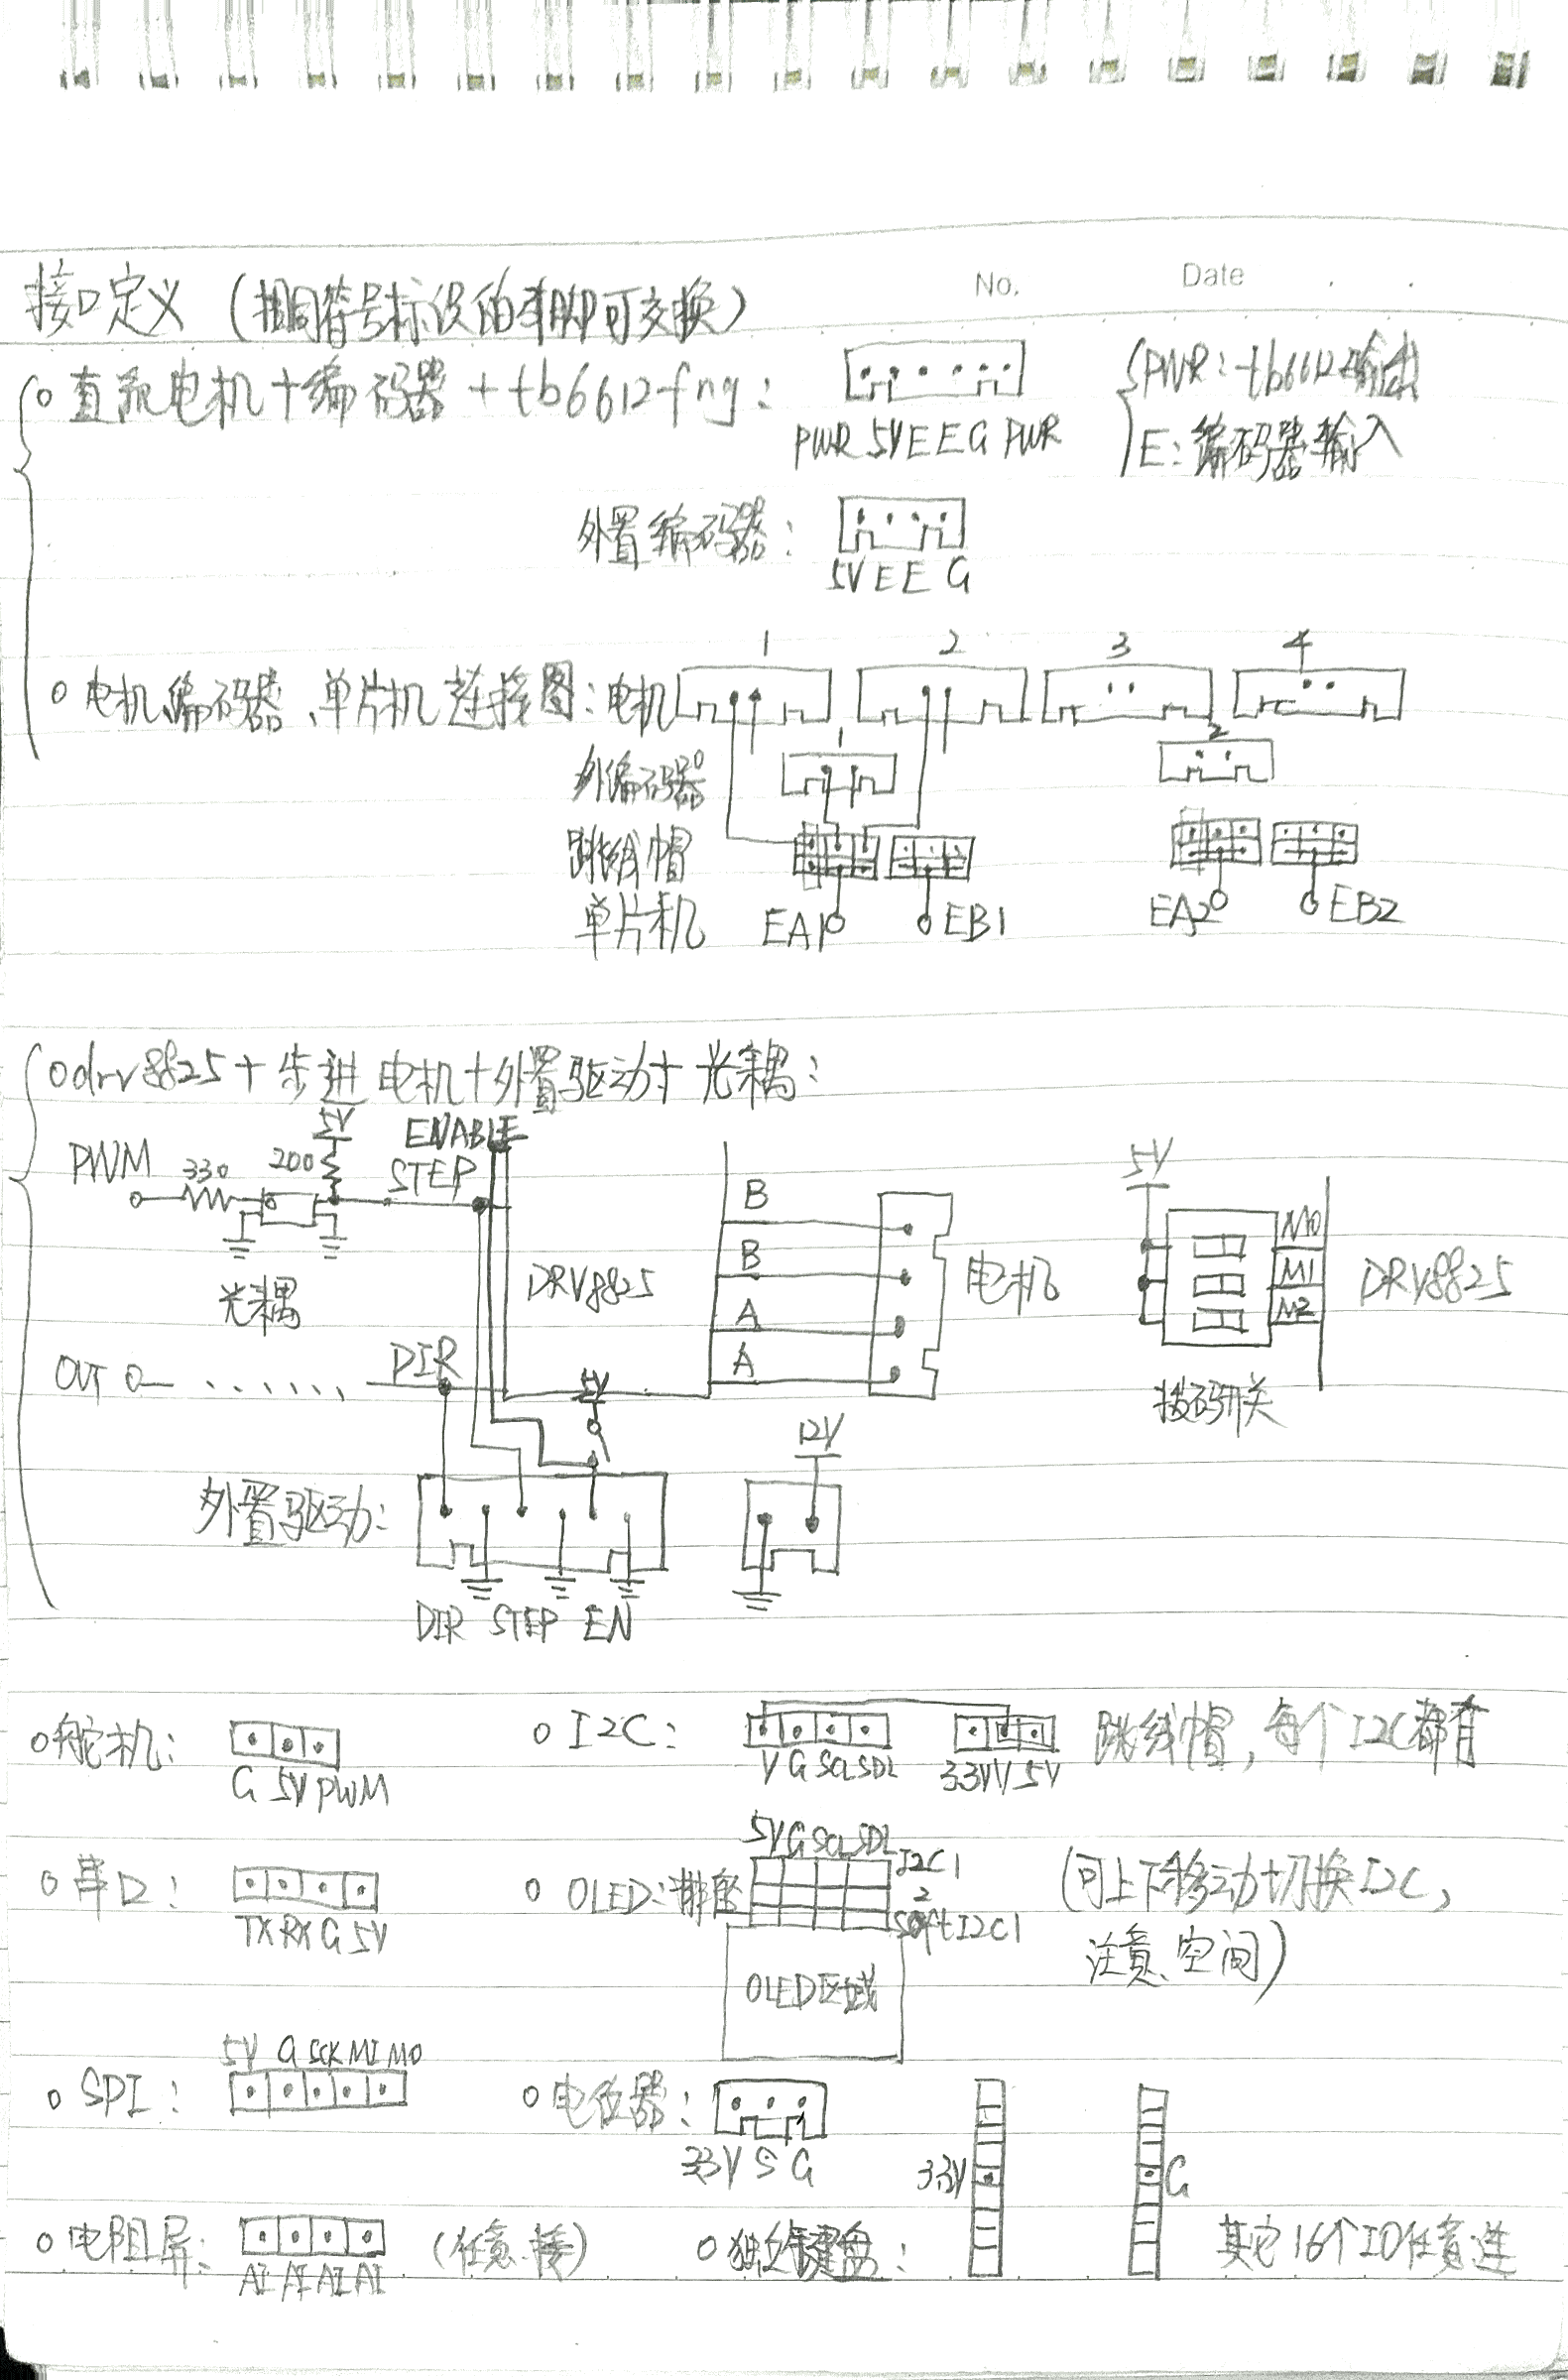 No. Date
接口定义（相同符号标识的引脚可交换）
o 直流电机+编码器+tb6612fng：
PWR 5V E E G PWR
PWR：tb6612输出
E：编码器输入
外置编码器：
5V E E G
o 电机、编码器、单片机连接图：电机 1 2 3 4
外编码器 1 2
跳线帽
单片机 EA1 EB1 EA2 EB2
o drv8825+步进电机+外置驱动+光耦：
PWM 330 200 5V ENABLE
STEP
光耦
DRV8825
B
B
A
A
电机
5V
M0
M1
M2
DRV8825
拨码开关
OUT DIR
5V
12V
外置驱动：
DIR STEP EN
o 舵机：
G 5V PWM
o I2C：
V G SCL SDL 3.3V V 5V
跳线帽，每个I2C都有
o 串口：
TX RX G 5V
o OLED：排座
5V G SCL SDL
I2C1
2
SoftI2C1
OLED区域
（可上下移动切换I2C，
注意空间）
o SPI：
5V G SCK MI MO
o 电位器：
3.3V S G
o 电阻屏：
AI AI AI AI
（任意接）
o 独立键盘：
3.3V
G
其它16个IO任意连